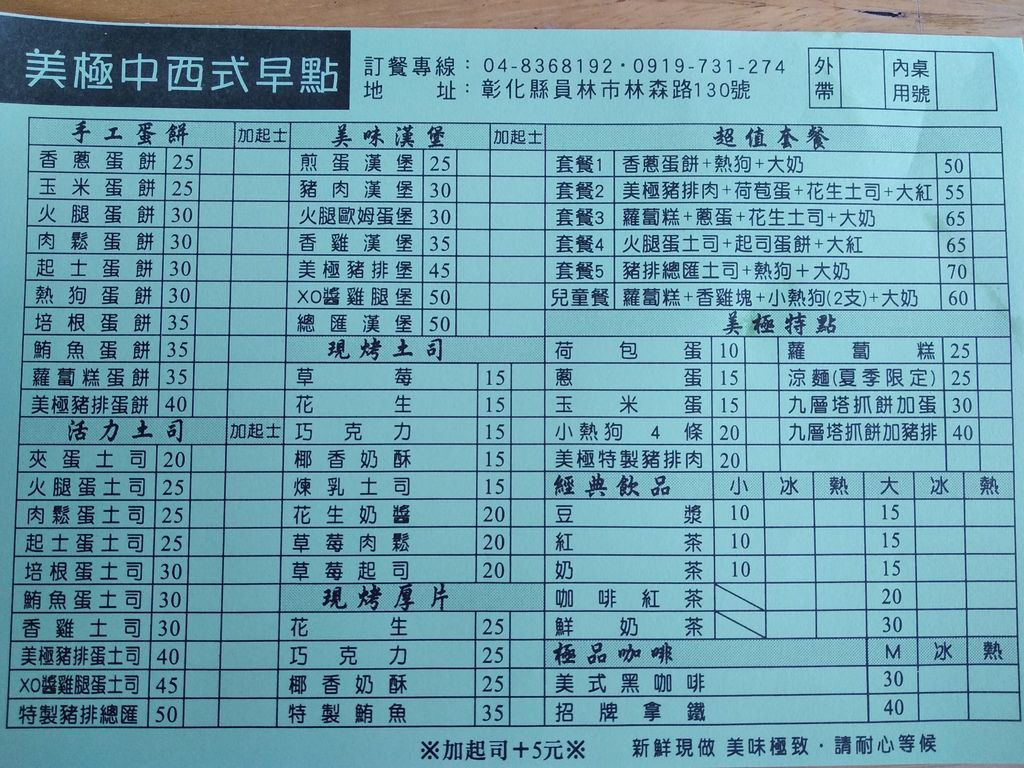 美極中西式早點
訂餐專線：04-8368192·0919-731-274
地址：彰化縣員林市林森路130號
外帶
內用
桌號
手工蛋餅 加起士
香蔥蛋餅 25
玉米蛋餅 25
火腿蛋餅 30
肉鬆蛋餅 30
起士蛋餅 30
熱狗蛋餅 30
培根蛋餅 35
鮪魚蛋餅 35
蘿蔔糕蛋餅 35
美極豬排蛋餅 40
活力土司 加起士
夾蛋土司 20
火腿蛋土司 25
肉鬆蛋土司 25
起士蛋土司 25
培根蛋土司 30
鮪魚蛋土司 30
香雞土司 30
美極豬排蛋土司 40
XO醬雞腿蛋土司 45
特製豬排總匯 50
美味漢堡 加起士
煎蛋漢堡 25
豬肉漢堡 30
火腿歐姆蛋堡 30
香雞漢堡 35
美極豬排堡 45
XO醬雞腿堡 50
總匯漢堡 50
現烤土司
草莓 15
花生 15
巧克力 15
椰香奶酥 15
煉乳土司 15
花生奶醬 20
草莓肉鬆 20
草莓起司 20
現烤厚片
花生 25
巧克力 25
椰香奶酥 25
特製鮪魚 35
超值套餐
套餐1 香蔥蛋餅+熱狗+大奶 50
套餐2 美極豬排肉+荷苞蛋+花生土司+大紅 55
套餐3 蘿蔔糕+蔥蛋+花生土司+大奶 65
套餐4 火腿蛋土司+起司蛋餅+大紅 65
套餐5 豬排總匯土司+熱狗+大奶 70
兒童餐 蘿蔔糕+香雞塊+小熱狗(2支)+大奶 60
美極特點
荷包蛋 10 蘿蔔糕 25
蔥蛋 15 涼麵(夏季限定) 25
玉米蛋 15 九層塔抓餅加蛋 30
小熱狗4條 20 九層塔抓餅加豬排 40
美極特製豬排肉 20
經典飲品 小 冰 熱 大 冰 熱
豆漿 10 15
紅茶 10 15
奶茶 10 15
咖啡紅茶 20
鮮奶茶 30
極品咖啡 M 冰 熱
美式黑咖啡 30
招牌拿鐵 40
※加起司+5元※ 新鮮現做 美味極致·請耐心等候